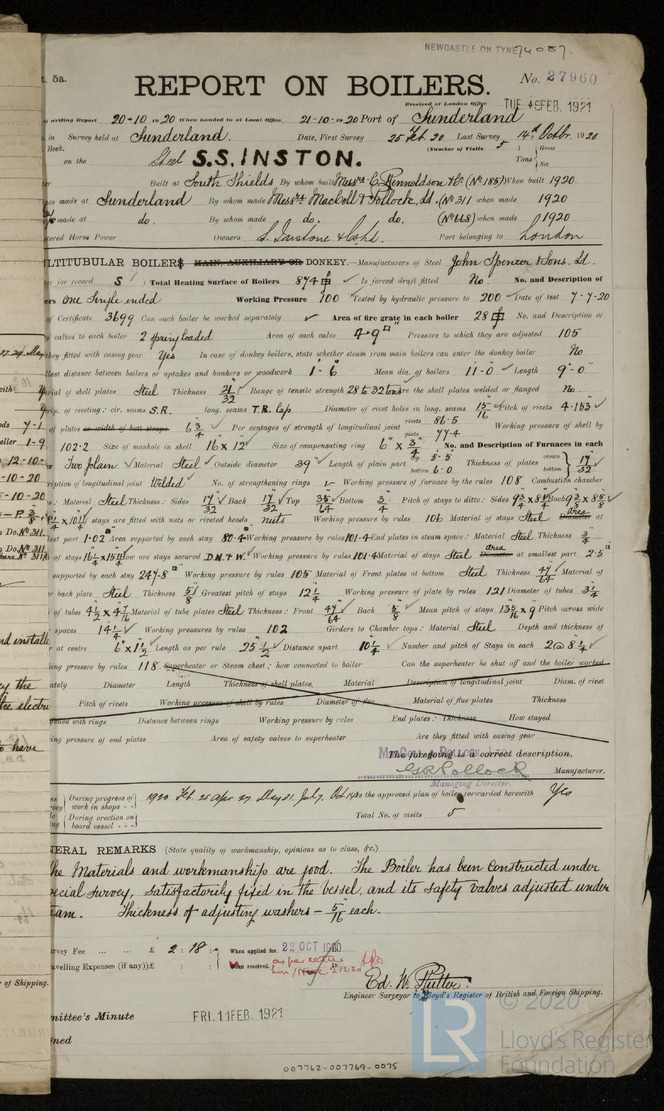 NEWCASTLE-ON-TYNE 74007.
t. 5a.
REPORT ON BOILERS.
No. 27960
Received at London Office TUE. 8 FEB. 1921
of writing Report 20-10-1920 When handed in at Local Office 21-10-1920 Port of Sunderland
in Survey held at Sunderland. Date, First Survey 25 Feb 20 Last Survey 14th Octbr 1920
Book. (Number of Visits 5) Gross
on the Steel S.S. INSTON. Tons Net
Built at South Shields By whom built Messrs C. Rennoldson & Co (No 185) When built 1920.
made at Sunderland By whom made Messrs MacColl & Pollock, Ld. (No 311 when made 1920
made at do. By whom made do. do. (No 448) when made 1920
tered Horse Power Owners Port belonging to London
LTITUBULAR BOILERS MAIN, AUXILIARY OR DONKEY.—Manufacturers of Steel John Spencer & Sons. Ld.
for record S Total Heating Surface of Boilers 874 Is forced draft fitted No. No. and Description of
ers One Single ended Working Pressure 100 Tested by hydraulic pressure to 200 Date of test 7-7-20
of Certificate 3699 Can each boiler be worked separately Area of fire grate in each boiler 28 No. and Description of
ty valves to each boiler 2 spring loaded Area of each valve 4.9 Pressure to which they are adjusted 105
they fitted with easing gear Yes In case of donkey boilers, state whether steam from main boilers can enter the donkey boiler No
llest distance between boilers or uptakes and bunkers or woodwork 1-6 Mean dia. of boilers 11-0 Length 9'-0"
rial of shell plates Steel Thickness 21/32 Range of tensile strength 28 to 32 tons Are the shell plates welded or flanged no
rip. of riveting: cir. seams S.R. long. seams T.R. Lap Diameter of rivet holes in long. seams 15/16 Pitch of rivets 4.153
of plates or width of butt straps 6 3/4 Per centages of strength of longitudinal joint rivets 86.5 plate 77.4 Working pressure of shell by
102.2 Size of manhole in shell 16" x 12" Size of compensating ring 6" x 3/4" No. and Description of Furnaces in each
Two plain Material Steel Outside diameter 39" Length of plain part top 5-5 bottom 6-0 Thickness of plates crown bottom 17/32
ription of longitudinal joint Welded No. of strengthening rings Working pressure of furnace by the rules 108 Combustion chamber
: Material Steel Thickness: Sides 17/32 Back 17/32 Top 35/64 Bottom 3/4 Pitch of stays to ditto: Sides 9 3/4 x 8 1/4 Back 9 3/8 x 8 5/8
x 10 1/4 If stays are fitted with nuts or riveted heads nuts Working pressure by rules 106 Material of stays Steel area Diameter at
est part 1.02 Area supported by each stay 80.4 Working pressure by rules 101.4 End plates in steam space: Material Steel Thickness 3/4
of stays 16 1/4 x 15 How are stays secured D.N.T.W. Working pressure by rules 101.4 Material of stays Steel area Diameter at smallest part 2.5
supported by each stay 247.8 Working pressure by rules 105 Material of Front plates at bottom Steel Thickness 47/64 Material of
er back plate Steel Thickness 5/8 Greatest pitch of stays 12 1/4 Working pressure of plate by rules 121 Diameter of tubes 3 1/4
of tubes 4 1/2 x 4 7/16 Material of tube plates Steel Thickness: Front 47/64 Back 5/8 Mean pitch of stays 13 5/16 x 9 Pitch across wide
spaces 14 1/4 Working pressures by rules 102 Girders to Chamber tops: Material Steel Depth and thickness of
er at centre 6" x 1 1/2 Length as per rule 25 1/2 Distance apart 10 1/4 Number and pitch of Stays in each 2 @ 8 1/4
ing pressure by rules 118 Superheater or Steam chest; how connected to boiler Can the superheater be shut off and the boiler worked
ately Diameter Length Thickness of shell plates Material Description of longitudinal joint Diam. of rivet
Pitch of rivets Working pressure of shell by rules Diameter of flue Material of flue plates Thickness
ffened with rings Distance between rings Working pressure by rules End plates: Thickness How stayed
ing pressure of end plates Area of safety valves to superheater Are they fitted with easing gear
The foregoing is a correct description.
Pollock Manufacturer.
Managing Director.
During progress of work in shops - - 1920 Feb. 25 Apr 27 May 21. July 7. Oct 14 Is the approved plan of boiler forwarded herewith Yes
During erection on board vessel - - - Total No. of visits 5
NERAL REMARKS (State quality of workmanship, opinions as to class, &c.)
The Materials and workmanship are good. The Boiler has been constructed under
ecial survey, satisfactorily fixed in the vessel, and its safety valves adjusted under
eam. Thickness of adjusting washers – 5/16" each.
rvey Fee ... ... £ 2 : 18 : When applied for, 22 OCT 1920
avelling Expenses (if any) £ : : When received, 2.12.20
Ed. W.
Engineer Surveyor to Lloyd's Register of British and Foreign Shipping.
mmittee's Minute FRI. 11 FEB. 1921
ned
of Shipping.
© 2020
LR Lloyd's Register
Foundation
007762-007769-0075